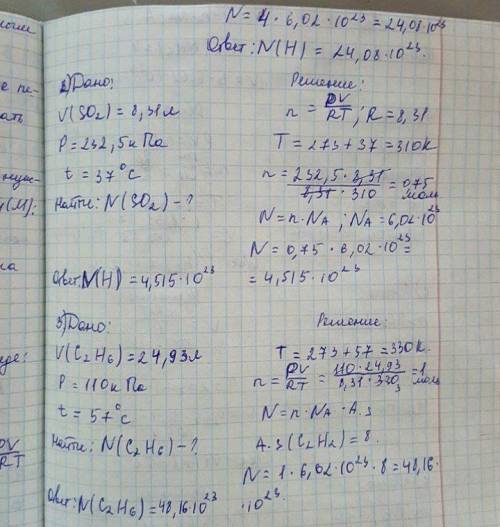 N = 4 · 6,02 · 10²³ = 24,08 · 10²³
Ответ: N(H) = 24,08 · 10²³.
2) Дано:
V(SO₂) = 8,31 л
P = 232,5 кПа
t = 37°C
Найти: N(SO₂) - ?
Решение:
n = PV/RT ; R = 8,31
T = 273 + 37 = 310K
n = 232,5 · 8,31 / 8,31 · 310 = 0,75 моль
N = n · NA ; NA = 6,02 · 10²³
N = 0,75 · 6,02 · 10²³ =
= 4,515 · 10²³
Ответ: N(H) = 4,515 · 10²³
3) Дано:
V(C₂H₆) = 24,93 л
P = 110 кПа
t = 57°C
Найти: N(C₂H₆) - ?
Решение:
T = 273 + 57 = 330K
n = PV/RT = 110 · 24,93 / 8,31 · 330 = 1 моль
N = n · NA · A.з
A.з (C₂H₂) = 8.
N = 1 · 6,02 · 10²³ · 8 = 48,16 ·
· 10²³.
Ответ: N(C₂H₆) = 48,16 · 10²³
PV/RT